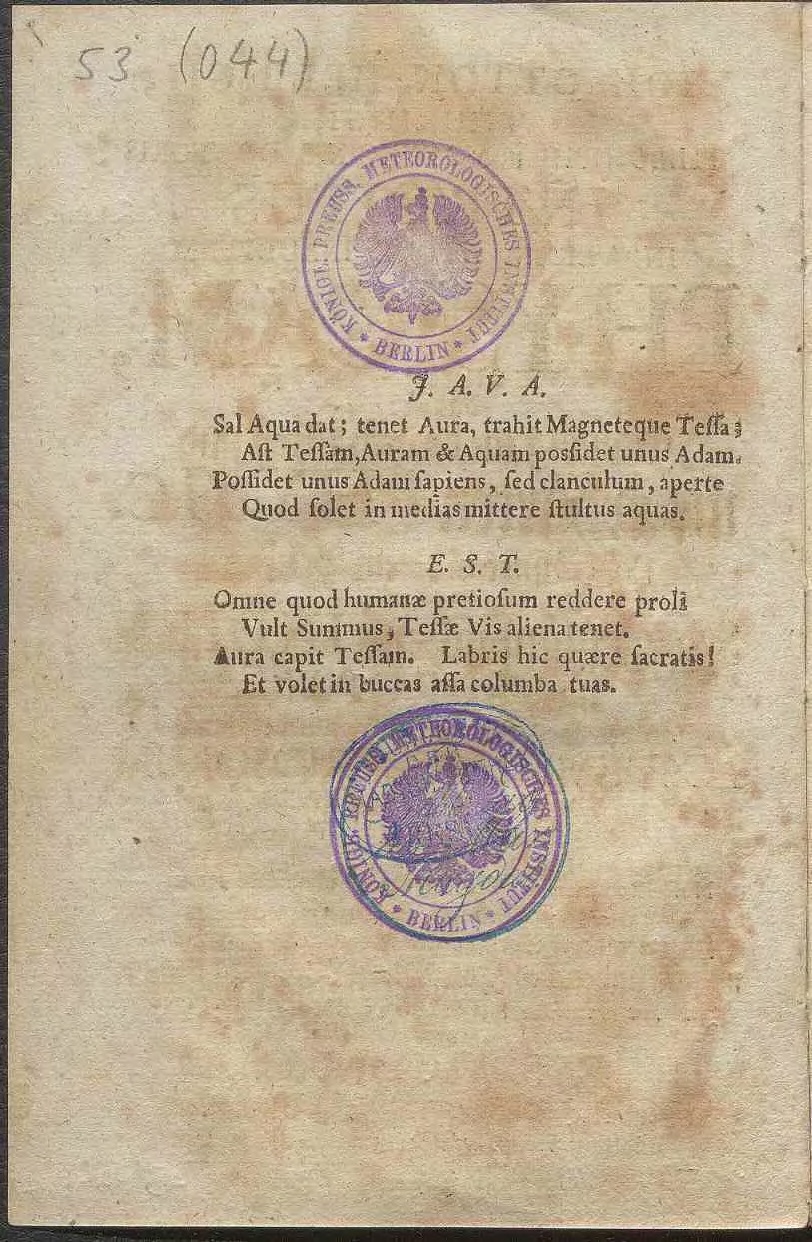 53 (044)
KÖNIGL: PREUSS. METEOROLOGISCHES INSTITUT * BERLIN *
J. A. V. A.
Sal Aqua dat; tenet Aura, trahit Magneteque Teſſa;
Aſt Teſſam, Auram & Aquam posſidet unus Adam.
Poſſidet unus Adam ſapiens, ſed clanculum, aperte
Quod ſolet in medias mittere ſtultus aquas.
E. S. T.
Omne quod humanæ pretioſum reddere proli
Vult Summus, Teſſæ Vis aliena tenet.
Aura capit Teſſam. Labris hic quære ſacratis!
Et volet in buccas aſſa columba tuas.
KÖNIGL. PREUSS. METEOROLOGISCHES INSTITUT * BERLIN *